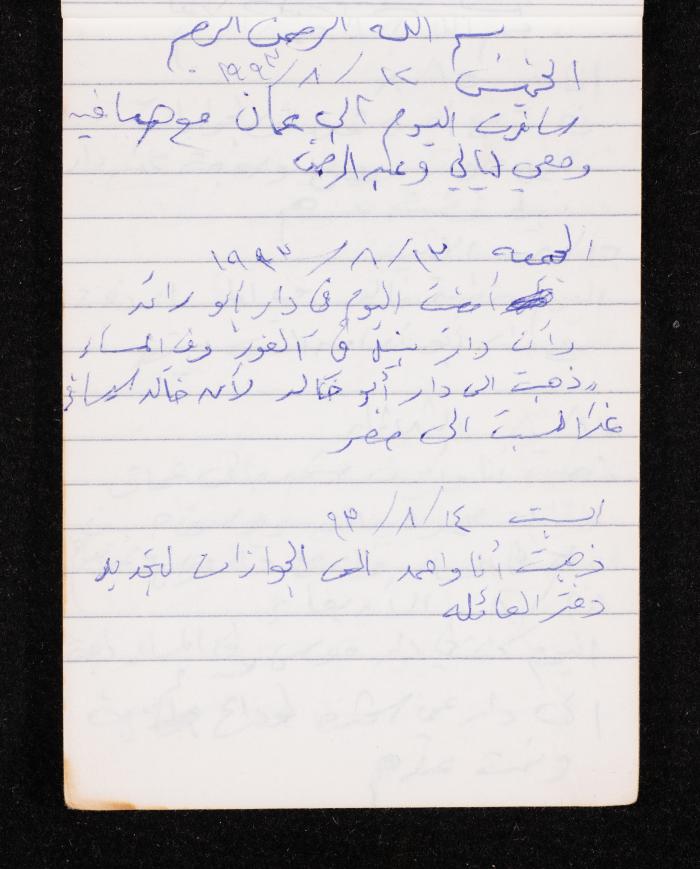 بسم الله الرحمن الرحيم
الخميس ١٢/٨/١٩٩٣
سافرت اليوم الى عمان مع صافيه
ومعي ليالي وعبد الرحمن
الجمعه ١٣/٨/١٩٩٣
امضت اليوم في دار أبو رائد
دار في الغور وفي المساء
ذهبت الى دار أبو خالد لأن خالد
غدا السبت الى مصر
السبت ١٤/٨/٩٣
ذهبت أنا واحمد الى الجوازات لتجديد
دفتر العائله